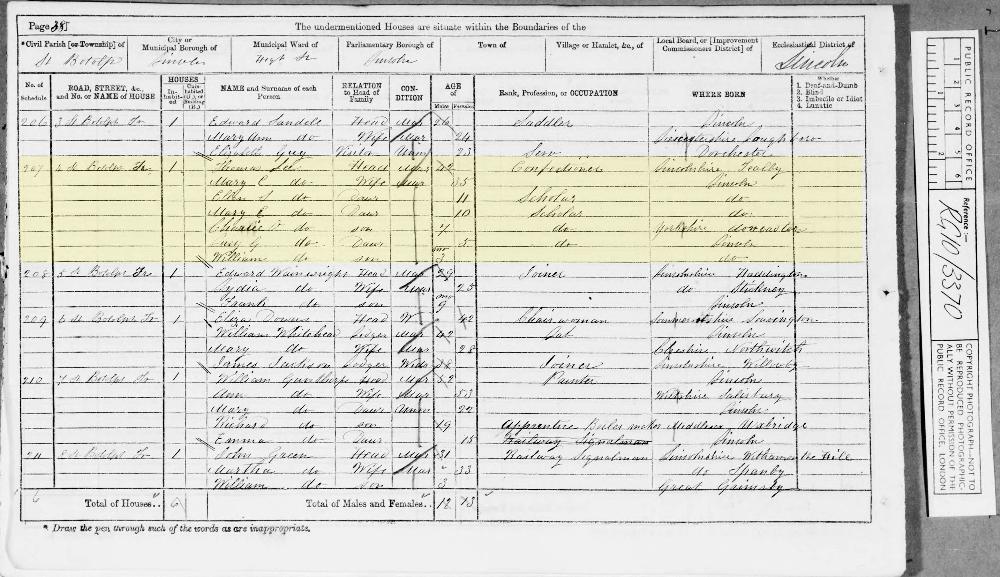 Page 38]
The undermented Houses are situate within the Boundaries of the
*Civil Parish [or Township] of
City or Municipal Borough of
Municipal Ward of
Parliamentary Borough of
Town of
Village or Hamlet, &c., of
Local Board, or [Improvement Commissioners District] of
Ecclesiastical District of
St Botolph Lincoln High St Lincoln Lincoln
No. of Schedule
ROAD, STREET, &c., and No. or NAME of HOUSE
HOUSES
In-habit-ed
NAME and Surname of each Person
RELATION to Head of Family
CON-DITION
AGE of
Males Females
Rank, Profession, or OCCUPATION
WHERE BORN
Whether
1. Deaf-and-Dumb
2. Blind
3. Imbecile or Idiot
4. Lunatic
206 3 St Botolps Tr 1 Edward Head Mar 26 Saddler Lincoln
Mary Ann do Wife Mar 24 Leicestershire
Elizabeth Guy Visitor Unm 23 Serv Dorchester
207 4 St Botolps Tr 1 Thomas Lee Head Mar 42 Confectioner Lincolnshire Tealby
Mary do Wife Mar 35 Lincoln
Ellen S do Daur 11 Scholar do
Mary E do Daur 10 Scholar do
Charlie do son 7 do Yorkshire Doncaster
Lucy G do Daur 5 do Lincoln
William do son 3 mo do
208 5 St Botolps Tr 1 Edward Wainwright Head Mar 29 Joiner Lincolnshire Waddington
Lydia do Wife Mar 25 do Stickney
Frank do son 9 mo Lincoln
209 6 St Botolps Tr 1 Eliza Downs Head W 42 Chairwoman Somersetshire
William Whitehead Lodger Mar 42 Lincoln
Mary do Wife Mar 28 Cheshire Northwitch
James Jackson Lodger Joiner Lincolnshire
210 7 St Botolps Tr 1 William Head Mar 52 Painter Lincoln
Ann do Wife Mar 53 Wiltshire Salsbury
Mary do Daur Unm 22 Lincoln
Richard do son 19 Apprentice Boiler maker Middlesex Uxbridge
Emma do Daur 15 Railway Signalman Lincoln
211 8 St Botolps Tr 1 John Green Head Mar 31 Railway Signalman Lincolnshire the Hill
Martha do Wife Mar 33 do Spanby
William do son 3 Great Grimsby
Total of Houses.. 6 Total of Males and Females.. 12 13
* Draw the pen through such of the words as are inappropriate.
PUBLIC RECORD OFFICE
1 2 3 4 5 6
1 2
Reference :-
RG 10/3370
COPYRIGHT PHOTOGRAPH—NOT TO BE REPRODUCED PHOTOGRAPHIC-ALLY WITHOUT PERMISSION OF THE PUBLIC RECORD OFFICE, LONDON